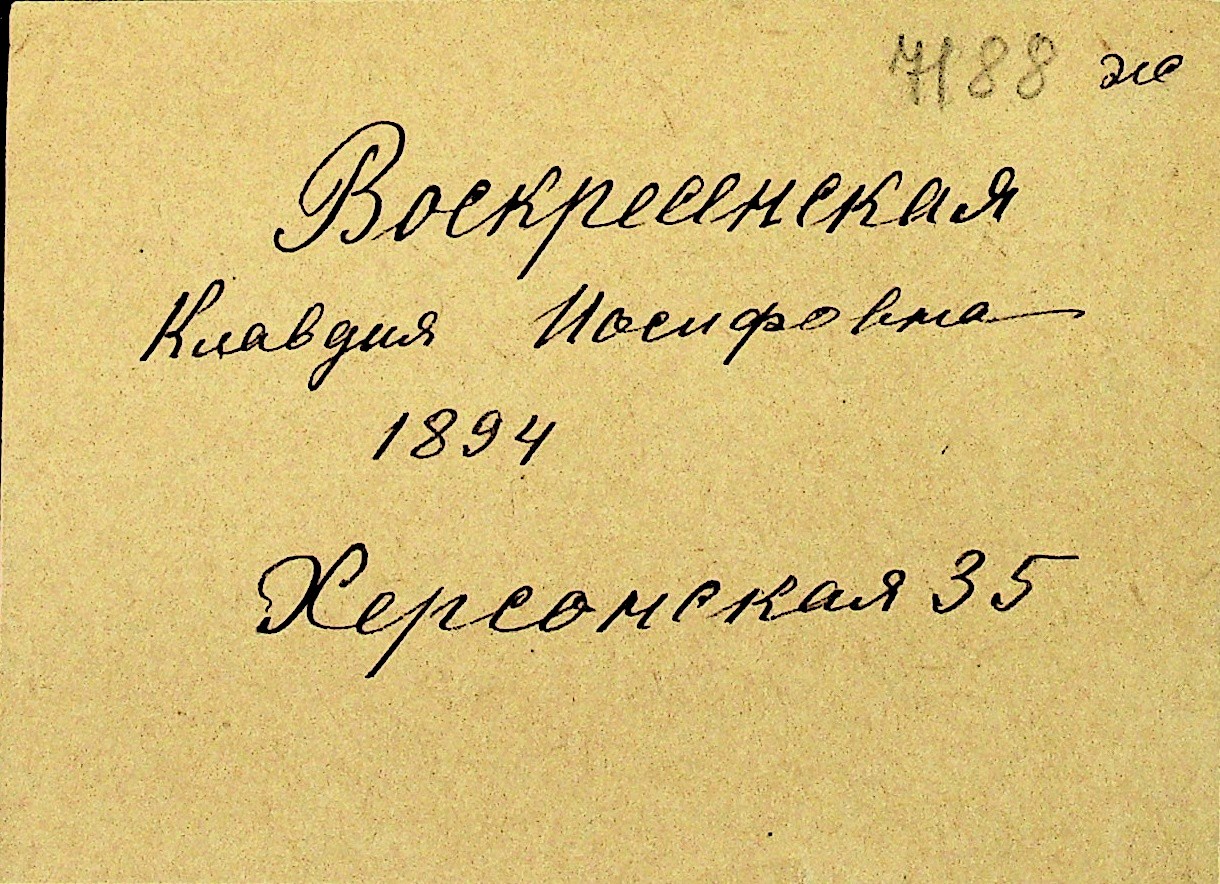 7188 ж
Воскресенская
Клавдия Иосифовна
1894
Херсонская 35